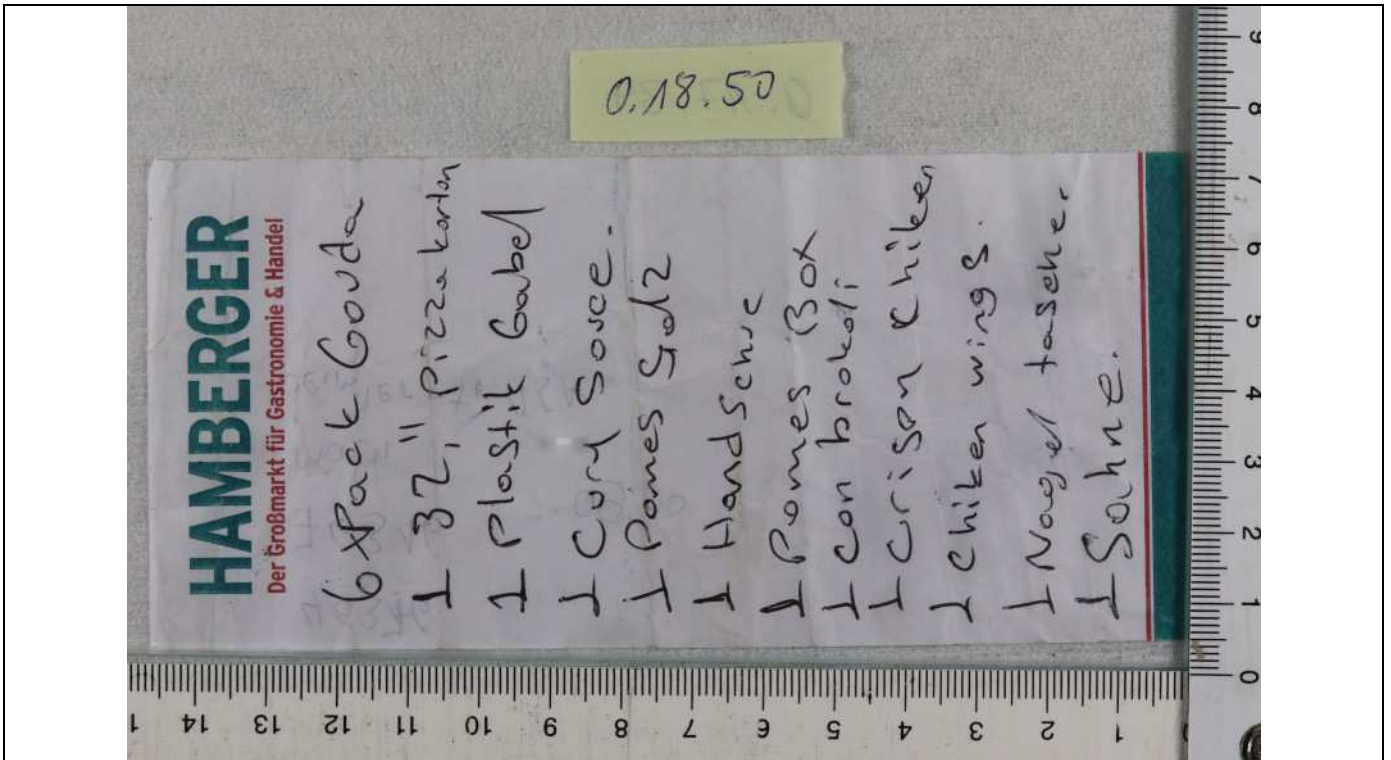 0.18.50
HAMBERGER
Der Großmarkt für Gastronomie & Handel
6xPack Gouda
1 32," Pizzakarton
1 Plastik Gabel
1 Cury Sosce.
1 Pomes Salz
1 Handschue
1 Pomes Box
1 Con brokoli
1 Crispn Chiken
1 Chiken wings.
1 Nagel tasche.
1 Sahne.
9
8
7
6
5
4
3
2
1
0
1 14 13 12 11 10 9 8 7 6 5 4 3 2 1